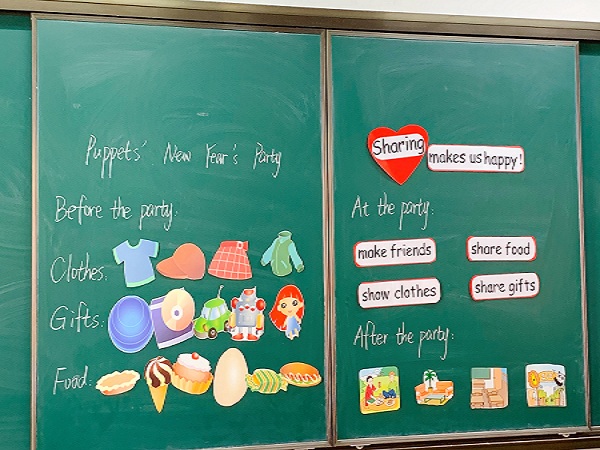 Puppets' New Year's Party
Before the party:
Clothes:
Gifts:
Food:
Sharing
makes us happy!
At the party:
make friends
share food
show clothes
share gifts
After the party: